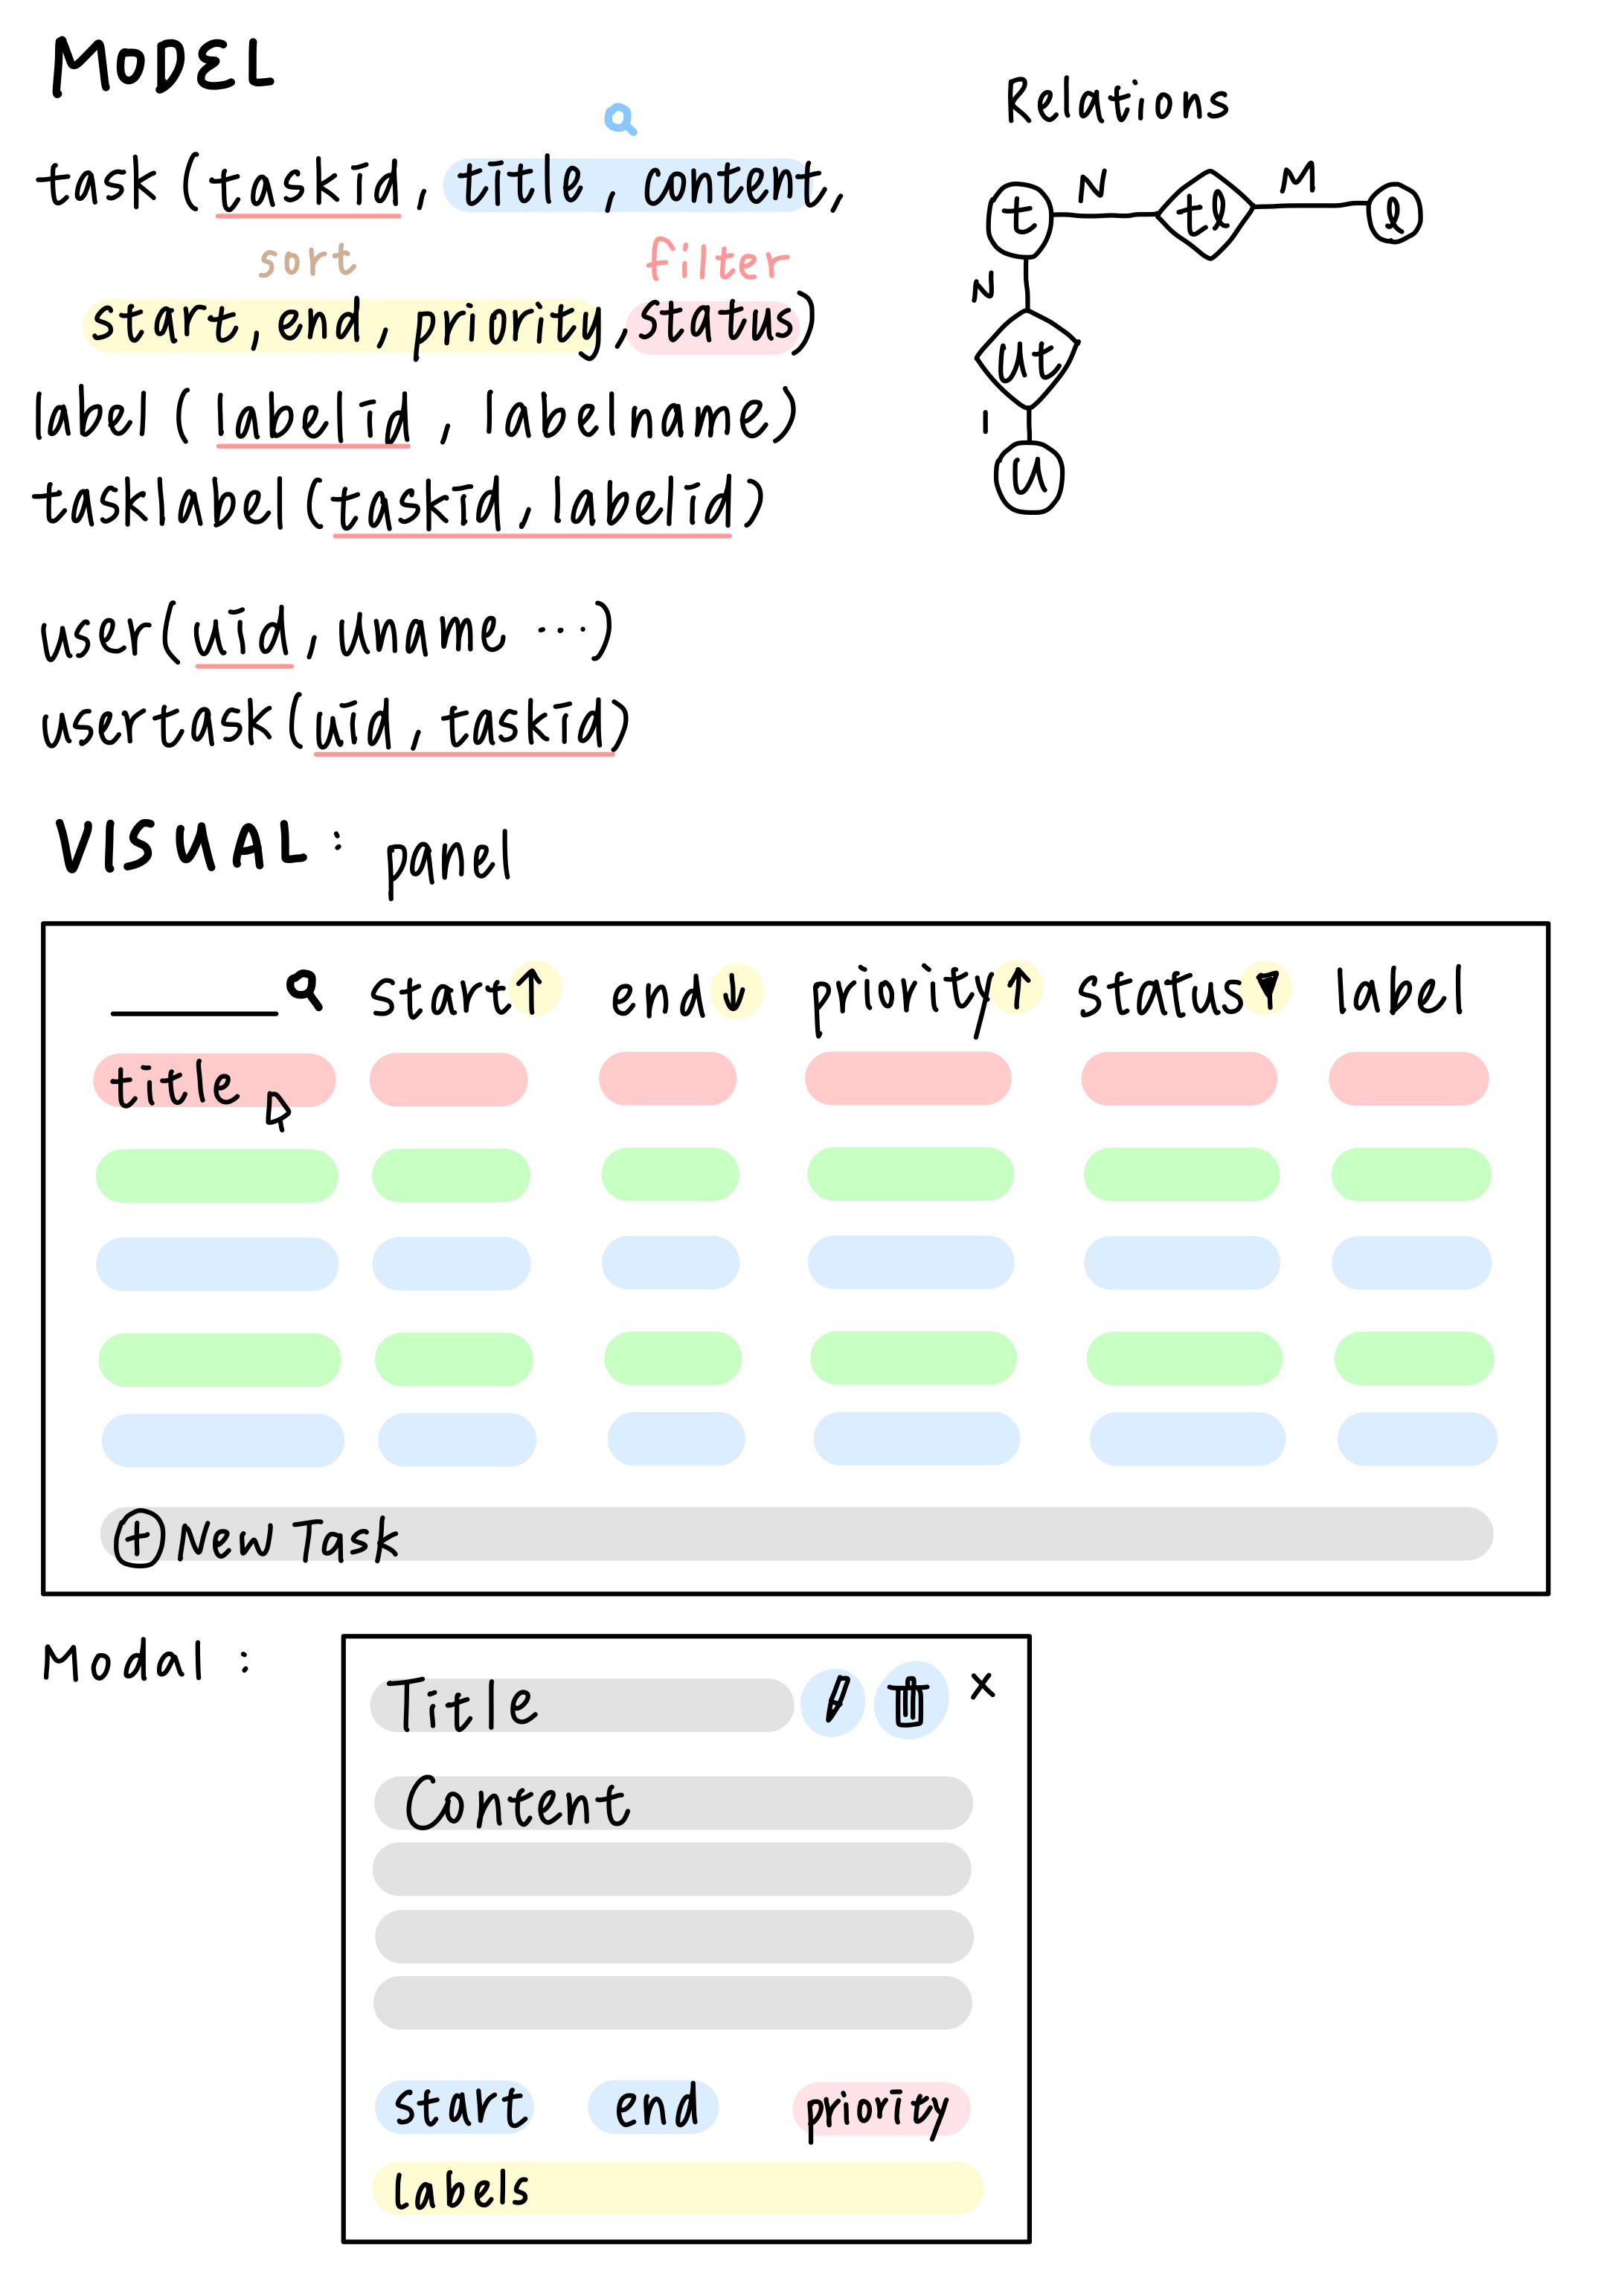 MODEL
task (taskid, title, content,
sort filter
start, end, priority, status)
label (labelid, labelname)
tasklabel (taskid, labelid)
user (uid, uname ...)
usertask (uid, taskid)
Relations
t N tl M l
N
ut
1
u
VISUAL : panel
start ↑ end ↓ priority ↑ status ▼ label
title
+ New Task
Modal :
Title x
Content
start end priority
labels